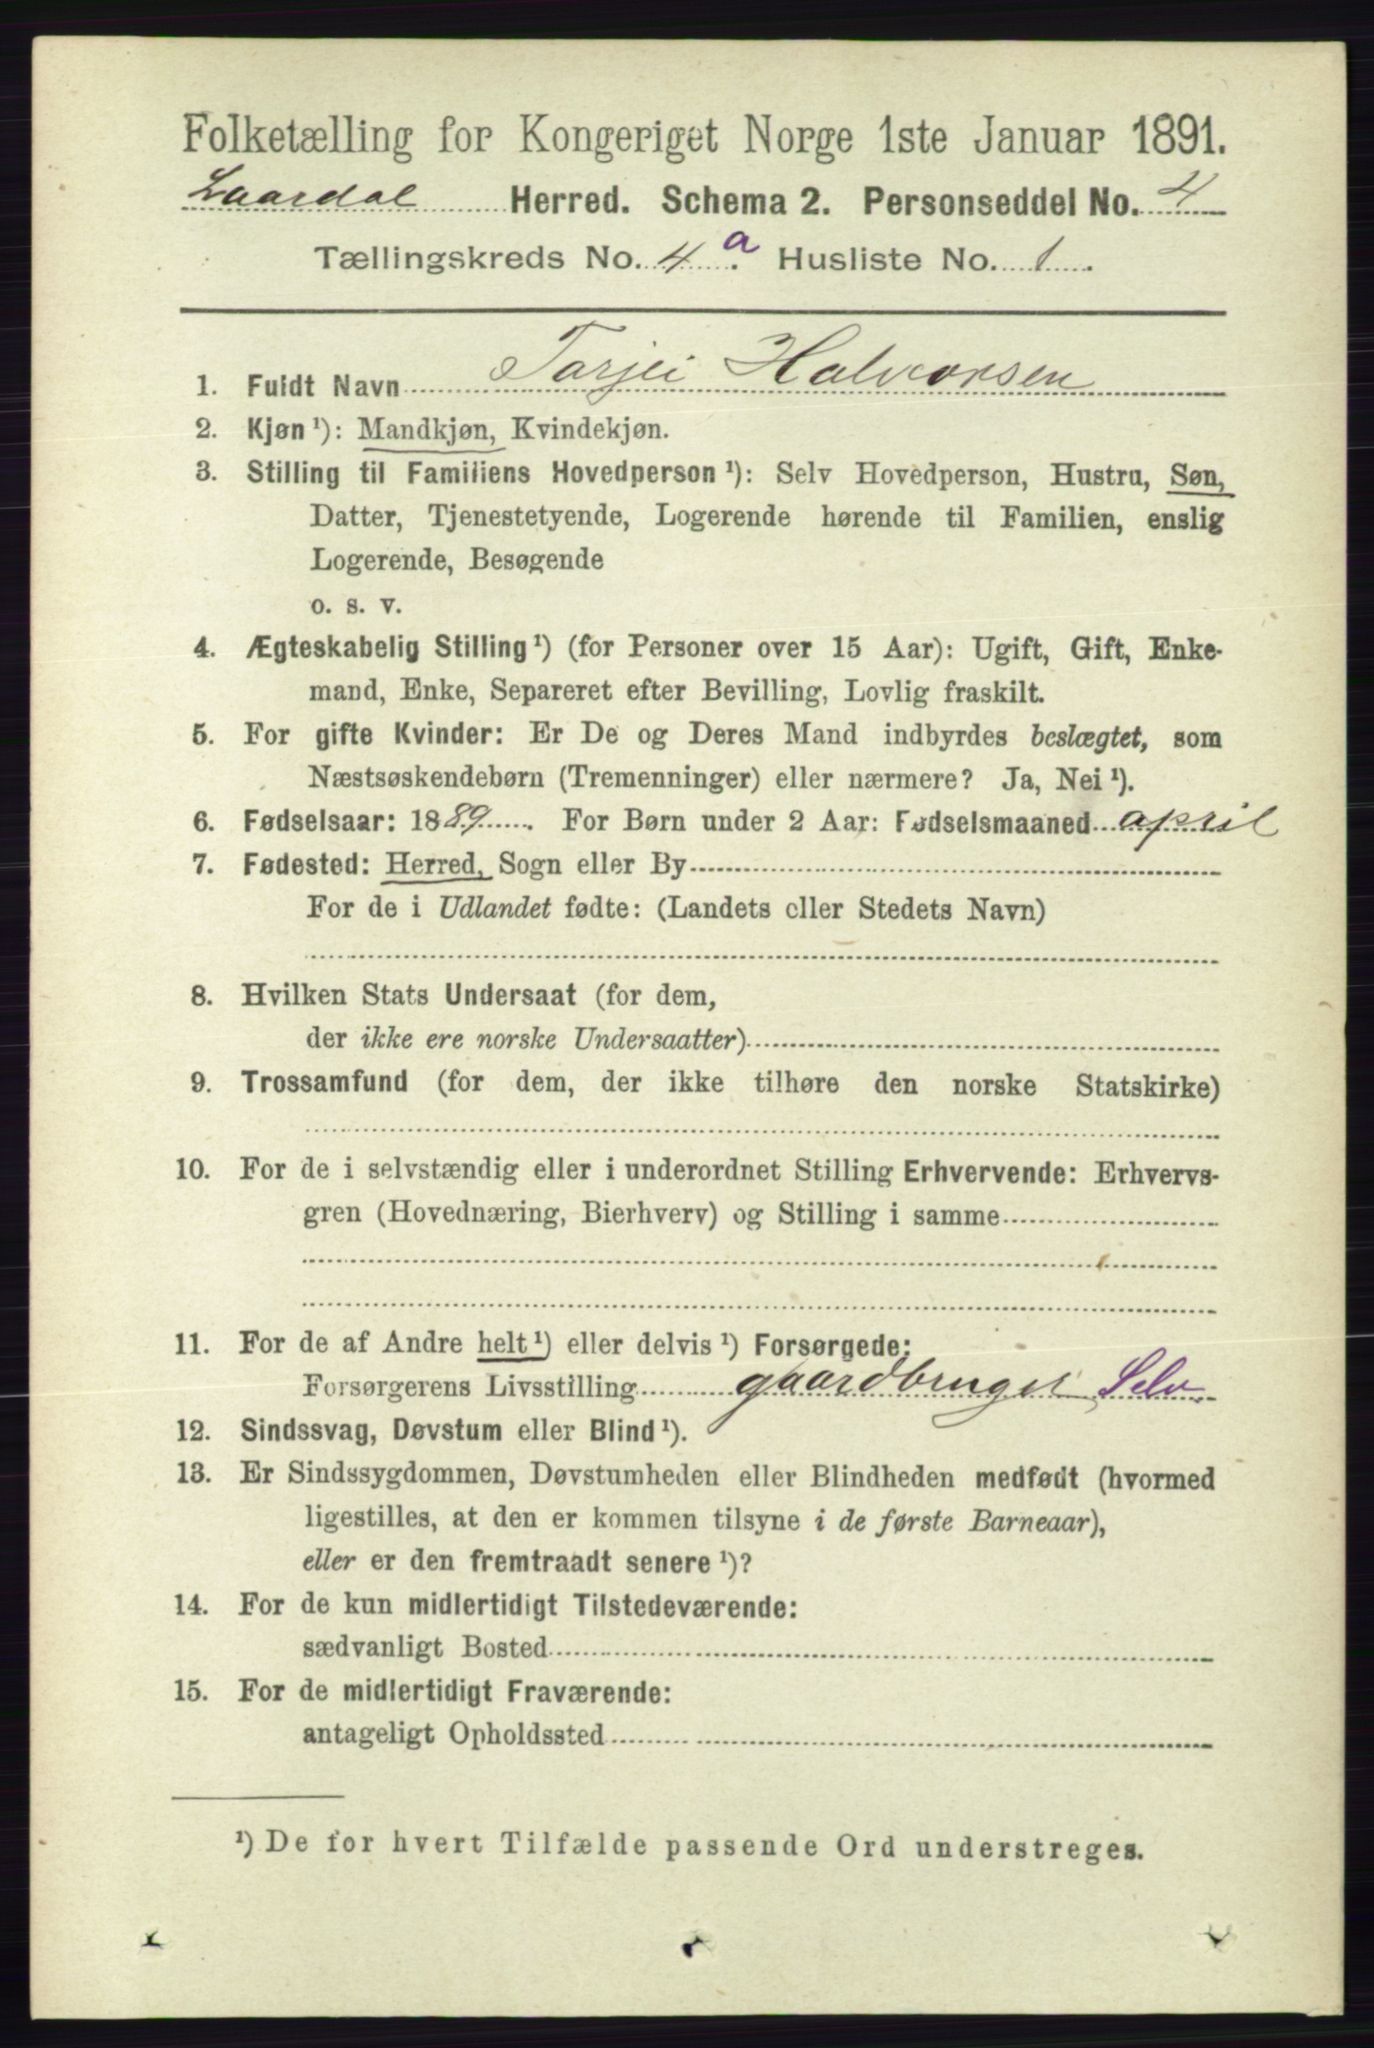 Folketælling for Kongeriget Norge 1ste Januar 1891.
Laardal Herred. Schema 2. Personseddel No. 4
Tællingskreds No. 4 a. Husliste No. 1.
1. Fuldt Navn Tarjei Halvorsen
2. Kjøn ¹): Mandkjøn, Kvindekjøn.
3. Stilling til Familiens Hovedperson ¹): Selv Hovedperson, Hustru, Søn,
Datter, Tjenestetyende, Logerende hørende til Familien, enslig
Logerende, Besøgende
o. s. v.
4. Ægteskabelig Stilling ¹) (for Personer over 15 Aar): Ugift, Gift, Enke-
mand, Enke, Separeret efter Bevilling, Lovlig fraskilt.
5. For gifte Kvinder: Er De og Deres Mand indbyrdes beslægtet, som
Næstsøskendebørn (Tremenninger) eller nærmere? Ja, Nei ¹).
6. Fødselsaar: 1889. For Børn under 2 Aar: Fødselsmaaned april
7. Fødested: Herred, Sogn eller By
For de i Udlandet fødte: (Landets eller Stedets Navn)
8. Hvilken Stats Undersaat (for dem,
der ikke ere norske Undersaatter)
9. Trossamfund (for dem, der ikke tilhøre den norske Statskirke)
10. For de i selvstændig eller i underordnet Stilling Erhvervende: Erhvervs-
gren (Hovednæring, Bierhverv) og Stilling i samme
11. For de af Andre helt ¹) eller delvis ¹) Forsørgede:
Forsørgerens Livsstilling gaardbruger Selv
12. Sindssvag, Døvstum eller Blind ¹).
13. Er Sindssygdommen, Døvstumheden eller Blindheden medfødt (hvormed
ligestilles, at den er kommen tilsyne i de første Barneaar),
eller er den fremtraadt senere ¹)?
14. For de kun midlertidigt Tilstedeværende:
sædvanligt Bosted
15. For de midlertidigt Fraværende:
antageligt Opholdssted
¹) De for hvert Tilfælde passende Ord understreges.